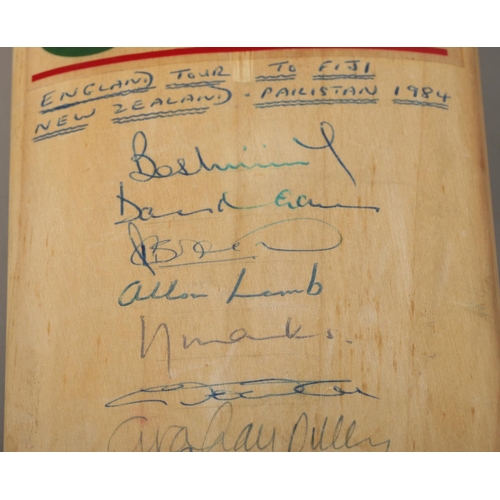 ENGLAND TOUR TO FIJI
NEW ZEALAND. PAKISTAN 1984
Bestwishes
David Gower
Allan Lamb
V Marks.
Graham Dilley